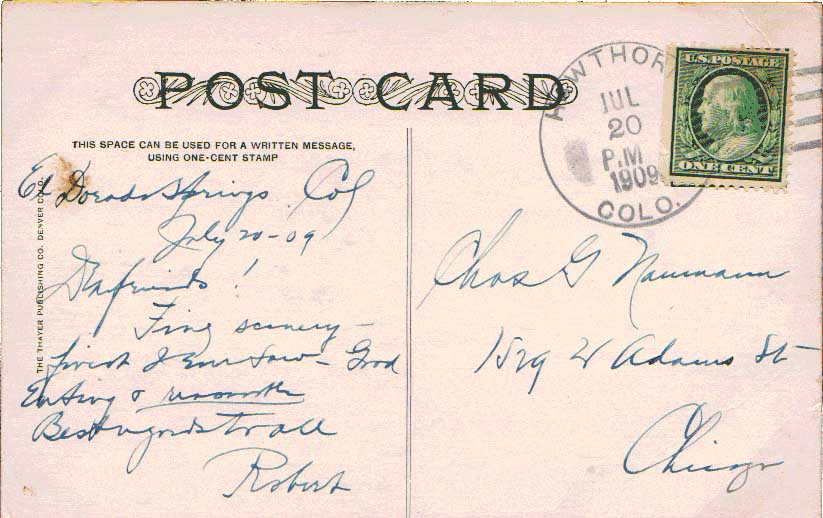 POST CARD
THIS SPACE CAN BE USED FOR A WRITTEN MESSAGE,
USING ONE-CENT STAMP
THE THAYER PUBLISHING CO. DENVER COLO.
El Dorado Springs Col
July 20-09
Dear friends!
Fine scenery –
finest I ever saw – Good
Eating &
Best regards to all
Robert
HAWTHORNE
JUL
20
P.M
1909
COLO.
U.S. POSTAGE
ONE CENT
Chas G Naumann
1529 W Adams St
Chicago